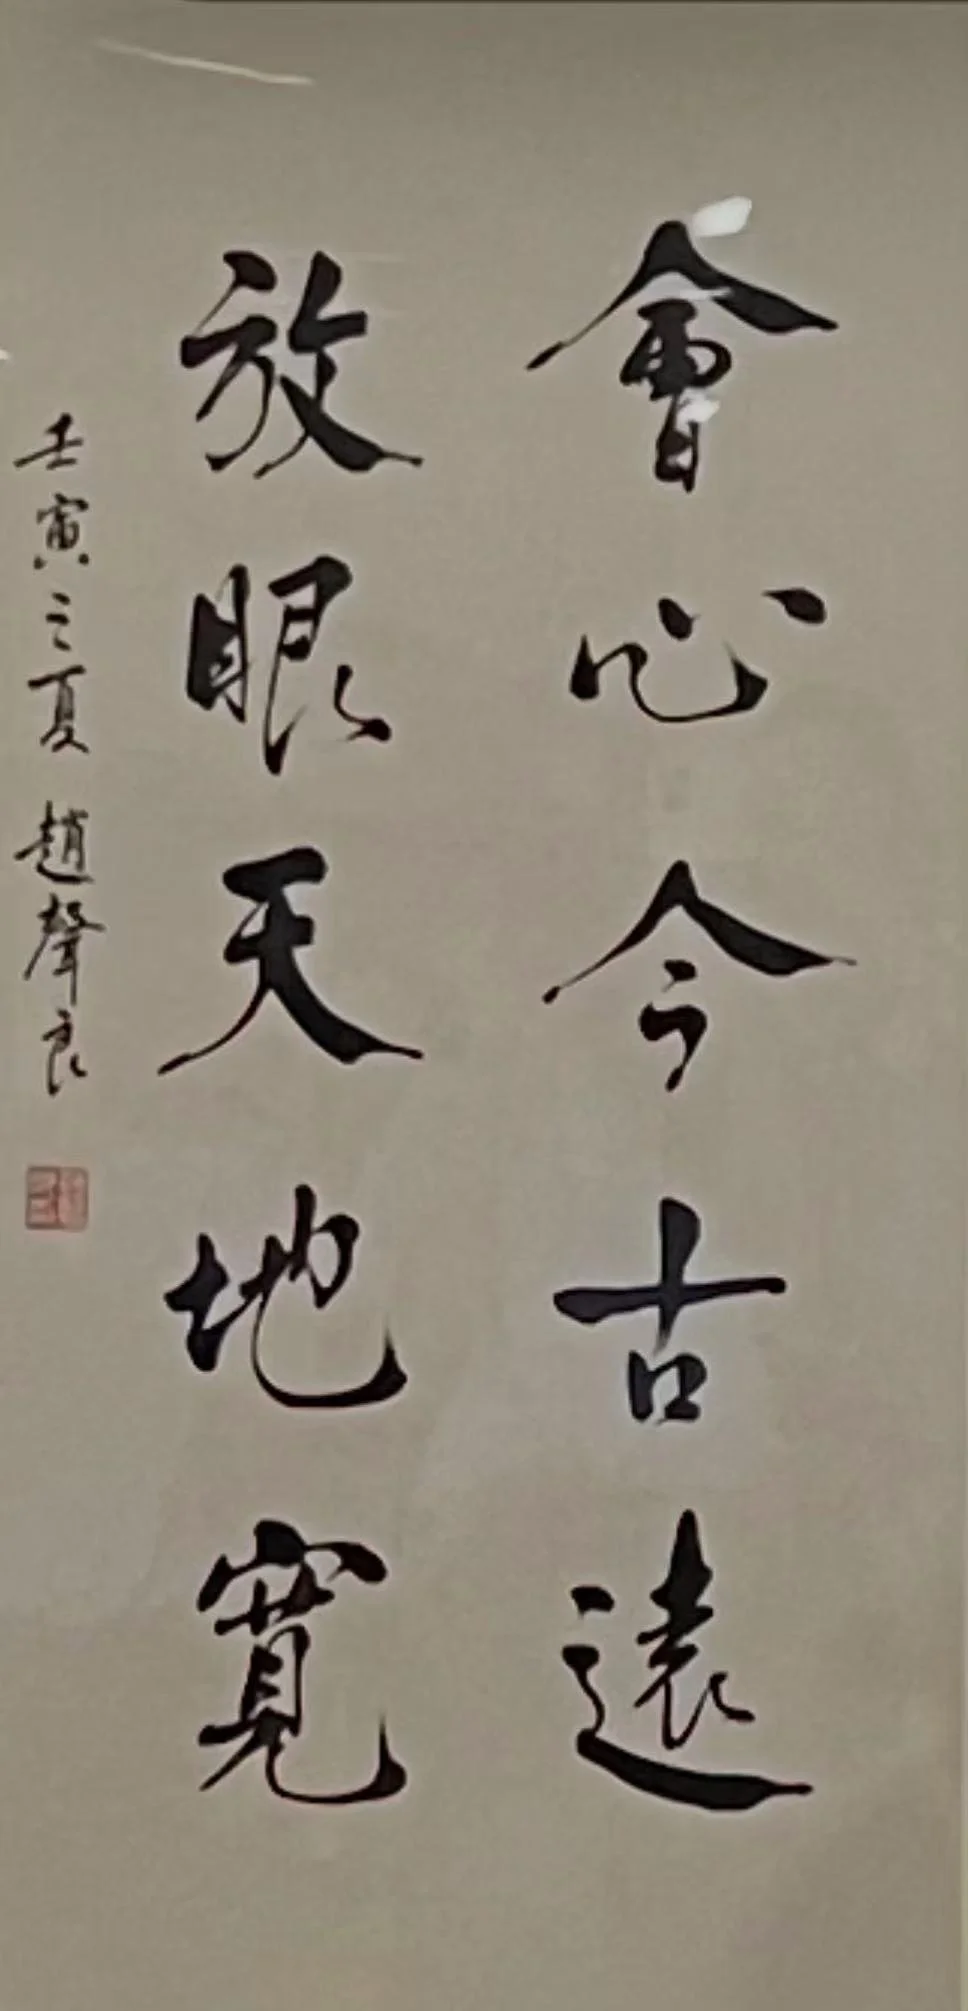 會心今古遠
放眼天地寬
壬寅之夏 趙聲良